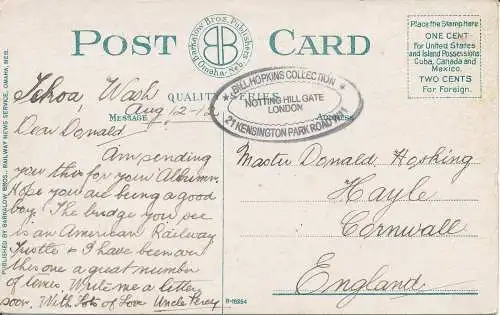 POST CARD
Barkalow Bros. Publishers
BB
Omaha, Neb.
QUALITY SERIES
Place the Stamp here
ONE CENT
For United States
and Island Possessions
Cuba, Canada and
Mexico.
TWO CENTS
For Foreign.
★ BILL HOPKINS COLLECTION ★
NOTTING HILL GATE
LONDON
21 KENSINGTON PARK ROAD W11
MESSAGE
Address
PUBLISHED BY BARKALOW BROS., RAILWAY NEWS SERVICE, OMAHA, NEB.
Tekoa, Wash
Aug 12-12
Dear Donald,
Am sending
you this for your Album.
Hope you are being a good
boy. The bridge you see
is an American Railway
Trestle & I have been over
this one a great number
of times. Write me a letter
soon. With lots of Love Uncle Percy
Master Donald Hosking
Hayle
Cornwall
England